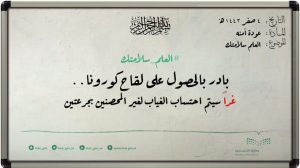 بسم الله الرحمن الرحيم
التاريخ: ٤ صفر ١٤٤٣ هـ
المادة: عودة آمنه
الموضوع: العلم سلامتك
#العلم_سلامتك
بادر بالحصول على لقاح كورونا..
غداً سيتم احتساب الغياب لغير المحصنين بجرعتين